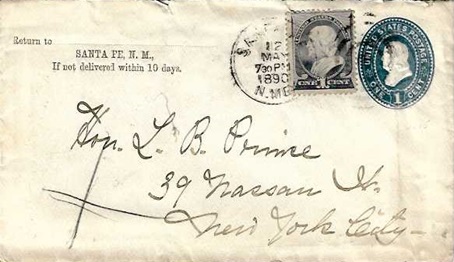 Return to
SANTA FE, N. M.,
If not delivered within 10 days.
SANTA
12
MAY
730PM
1890
N.ME
ONE CENT
UNITED STATES POSTAGE
ONE 1 CENT
Hon. L. B. Prince
39 Nassau St.
New York City